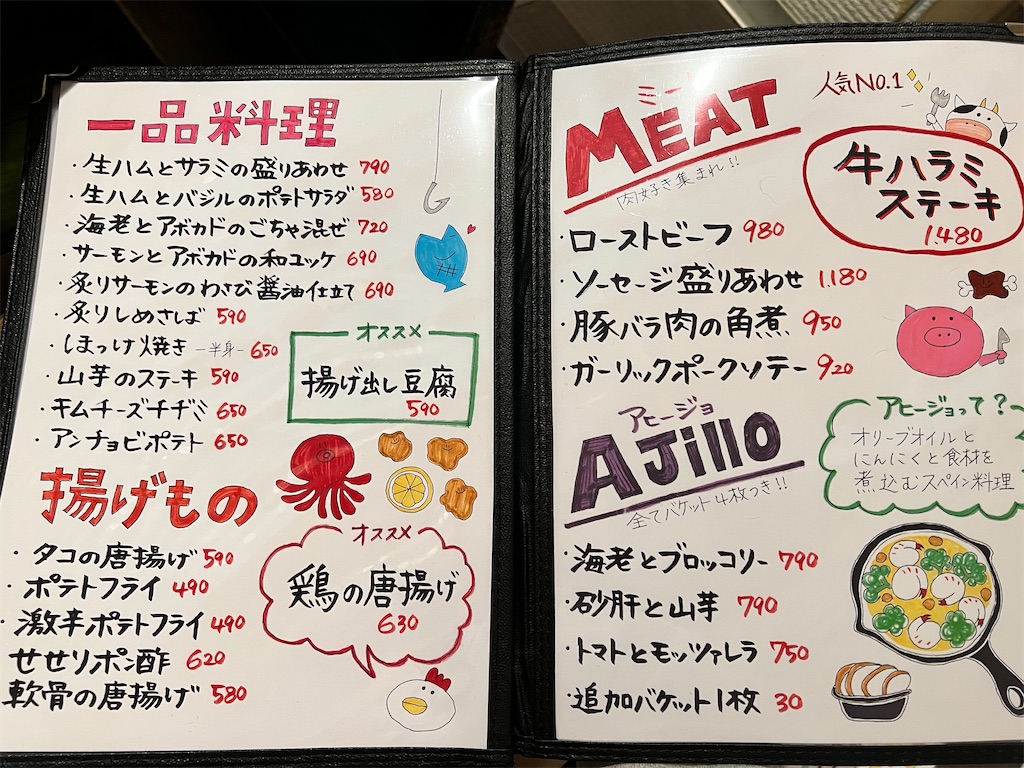 一品料理
・生ハムとサラミの盛りあわせ 790
・生ハムとバジルのポテトサラダ 580
・海老とアボカドのごちゃ混ぜ 720
・サーモンとアボカドの和ユッケ 690
・炙りサーモンのわさび醤油仕立て 690
・炙りしめさば 590
・しまっけ焼き -半身- 650
・山芋のステーキ 590
・キムチーズチヂミ 650
・アンチョビポテト 650
オススメ
揚げ出し豆腐
590
揚げもの
・タコの唐揚げ 590
・ポテトフライ 490
・激辛ポテトフライ 490
せせりポン酢 620
軟骨の唐揚げ 580
オススメ
鶏の唐揚げ
630
ミート
MEAT
肉好き集まれ!!
人気No.1
牛ハラミ
ステーキ
1.480
・ローストビーフ 980
・ソーセージ盛りあわせ 1.180
・豚バラ肉の角煮 950
・ガーリックポークソテー 920
アヒージョ
AJillO
全てバケット4枚つき!!
アヒージョって?
オリーブオイルと
にんにくと食材を
煮込むスペイン料理
・海老とブロッコリー 790
・砂肝と山芋 790
・トマトとモッツァレラ 750
・追加バケット1枚 30